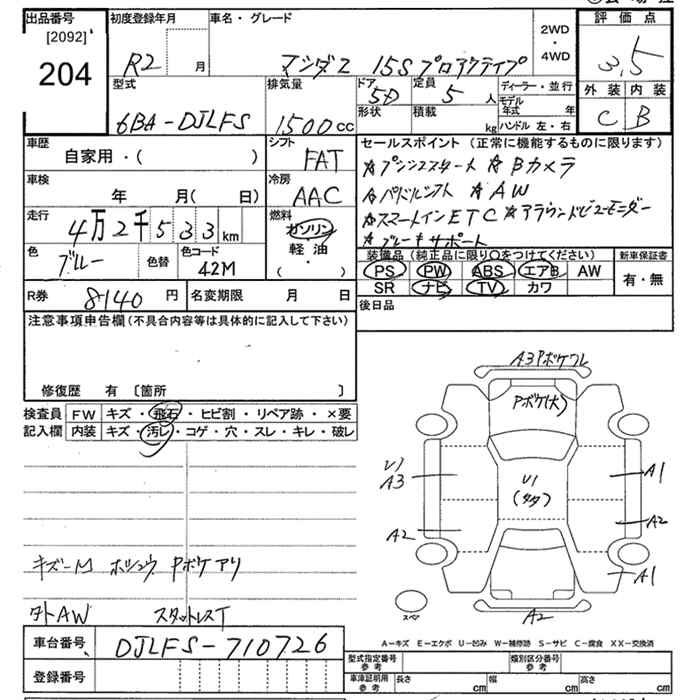 出品番号
[2092]
204
初度登録年月
R2 月
車名・グレード
マツダ2 15S プロアクティブ
2WD
・
4WD
評価点
3.5
外装 内装
C B
型式
6BA-DJLFS
排気量
1500cc
ドア
5D
形状
定員
5人
積載
kg
ディーラー・並行
モデル
年式 年
ハンドル 左・右
車歴
自家用・( )
シフト
FAT
車検
年 月( 日)
冷房
AAC
走行
4万2千533km
燃料
ガソリン
軽油
・
( )
色
ブルー
色替
色コード
42M
R券 8140円
名変期限 月 日
セールスポイント(正常に機能するものに限ります)
☆プッシュスタート ☆Bカメラ
☆パドルシフト ☆AW
☆スマートインETC ☆アラウンドビューモニター
☆ブレーキサポート
装備品(純正品に限り○をつけてください)
PS PW ABS エアB AW
SR ナビ TV カワ
新車保証書
有・無
後日品
注意事項申告欄(不具合内容等は具体的に記入して下さい)
修復歴 有 〔箇所 〕
検査員 FW キズ・飛石・ヒビ割・リペア跡・×要
記入欄 内装 キズ・汚レ・コゲ・穴・スレ・キレ・破レ
キズーM ホシュウ Pボケアリ
タトAW スタットレスT
A3 Pボケワレ
Pボケ(大)
U1
A3
U1
A1
A2
A2
A1
スペア
A2
A-キズ E-エクボ U-凹み W-補修跡 S-サビ C-腐食 XX-交換済
車台番号 DJLFS-710726
登録番号
型式指定番号
参考
類別区分番号
参考
車庫証明用
参考
長さ cm 幅 cm 高さ cm